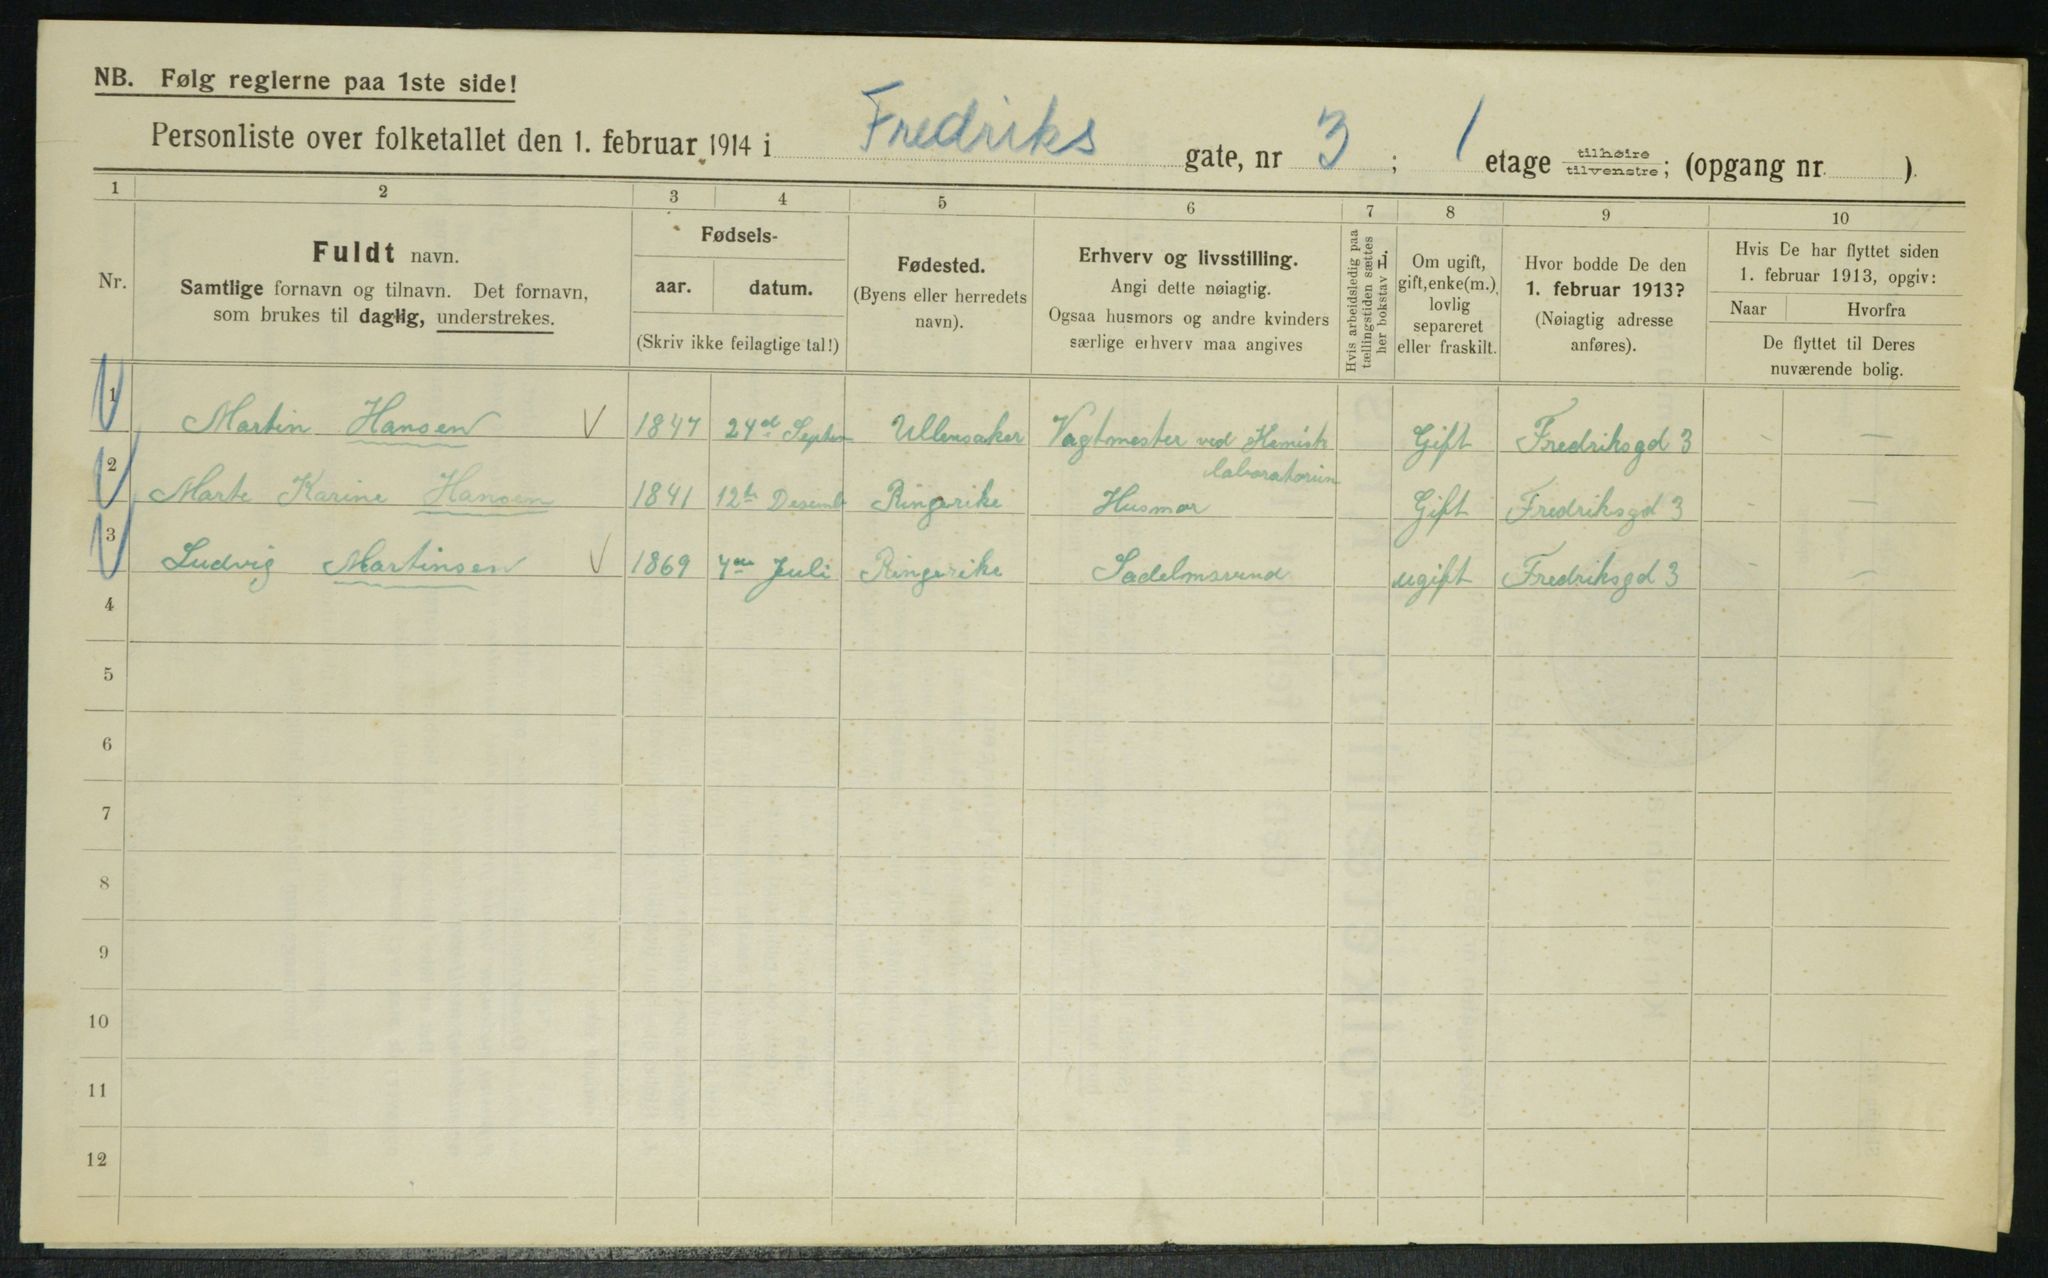 NB. Følg reglerne paa 1ste side!
Personliste over folketallet den 1. februar 1914 i Fredriks gate, nr 3 ; 1 etage tilhøire/tilvenstre; (opgang nr. ).
1 2 3 4 5 6 7 8 9 10
Nr.
Fuldt navn.
Samtlige fornavn og tilnavn. Det fornavn,
som brukes til daglig, understrekes.
Fødsels-
aar. datum.
(Skriv ikke feilagtige tal!)
Fødested.
(Byens eller herredets
navn).
Erhverv og livsstilling.
Angi dette nøiagtig.
Ogsaa husmors og andre kvinders
særlige erhverv maa angives
Hvis arbeidsledig paa
tællingstiden sættes
her bokstav L
Om ugift,
gift, enke(m.),
lovlig
separeret
eller fraskilt.
Hvor bodde De den
1. februar 1913?
(Nøiagtig adresse
anføres).
Hvis De har flyttet siden
1. februar 1913, opgiv:
Naar Hvorfra
De flyttet til Deres
nuværende bolig.
1 Martin Hansen 1847 24de Septem Ullensaker Vagtmester ved Kemisk laboratorium Gift Fredriksgd 3 - -
2 Marte Karine Hansen 1841 12te Desemb Ringerike Husmor Gift Fredriksgd 3 - -
3 Ludvig Martinsen 1869 4de Juli Ringerike Sadelmsvend ugift Fredriksgd 3 - -
4
5
6
7
8
9
10
11
12